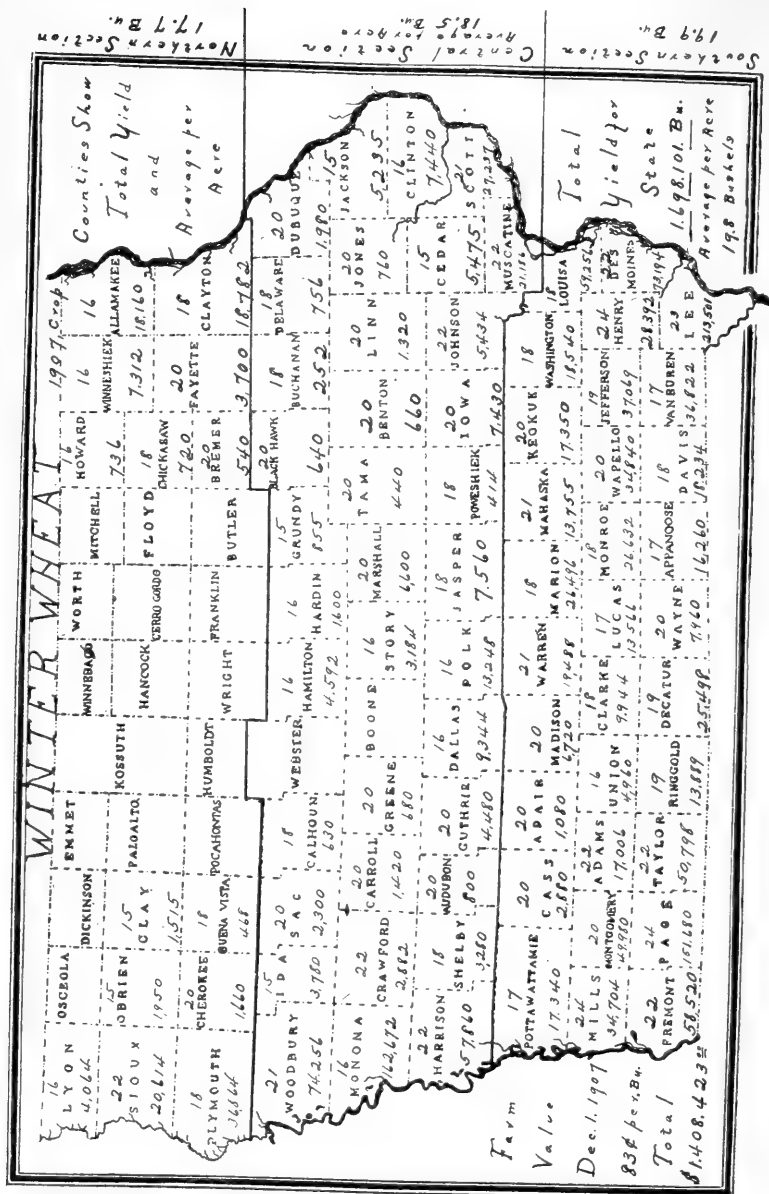 WINTER WHEAT
1907, Crop
Counties Show
Total Yield
and
Average per
Acre
Northern Section
17.7 Bu.
Central Section
Average per Acre
18.5 Bu.
Southern Section
19.9 Bu.
16
LYON
4,064
OSCEOLA
DICKINSON
EMMET
WINNEBAGO
WORTH
MITCHELL
16
HOWARD
736
16
WINNESHIEK
7,312
16
ALLAMAKEE
18,160
22
SIOUX
20,614
15
OBRIEN
1,950
15
CLAY
1,515
PALOALTO
KOSSUTH
HANCOCK
CERRO GORDO
FLOYD
18
CHICKASAW
720
20
FAYETTE
3,700
18
CLAYTON
18,782
18
PLYMOUTH
36,864
20
CHEROKEE
1,660
18
BUENA VISTA
468
POCAHONTAS
HUMBOLDT
WRIGHT
FRANKLIN
BUTLER
20
BREMER
540
21
WOODBURY
74,256
15
IDA
3,780
20
SAC
2,300
18
CALHOUN
630
WEBSTER
16
HAMILTON
4,592
16
HARDIN
1,600
15
GRUNDY
855
20
BLACK HAWK
640
18
BUCHANAN
252
18
DELAWARE
756
20
DUBUQUE
1,980
16
MONONA
162,672
22
CRAWFORD
2,882
20
CARROLL
1,420
20
GREENE
680
BOONE
16
STORY
3,184
20
MARSHALL
6,600
20
TAMA
440
20
BENTON
660
20
LINN
1,320
20
JONES
760
15
JACKSON
5,235
22
HARRISON
57,860
18
SHELBY
3,280
20
AUDUBON
800
20
GUTHRIE
4,480
16
DALLAS
9,344
16
POLK
13,248
18
JASPER
7,560
18
POWESHIEK
414
20
IOWA
7,430
22
JOHNSON
5,434
15
CEDAR
5,475
16
CLINTON
7,440
21
SCOTT
27,237
22
MUSCATINE
21,186
17
POTTAWATTAMIE
17,340
20
CASS
2,880
20
ADAIR
1,080
20
MADISON
6,720
21
WARREN
19,488
18
MARION
26,496
21
MAHASKA
13,755
20
KEOKUK
17,350
18
WASHINGTON
18,540
18
LOUISA
24
MILLS
34,704
20
MONTGOMERY
49,980
22
ADAMS
17,006
16
UNION
4,960
18
CLARKE
9,944
17
LUCAS
13,566
18
MONROE
26,632
20
WAPELLO
34,840
19
JEFFERSON
37,069
24
HENRY
28,392
22
DES
MOINES
22
FREMONT
58,520
24
PAGE
151,680
22
TAYLOR
50,798
19
RINGGOLD
13,889
19
DECATUR
25,498
20
WAYNE
7,460
17
APPANOOSE
16,260
18
DAVIS
18,234
17
VANBUREN
36,822
23
LEE
213,501
Farm
Value
Dec. 1, 1907
83¢ per. Bu.
Total
$1,408,423
Total
Yield for
State
1,698,101. Bu.
Average per Acre
19.8 Bushels